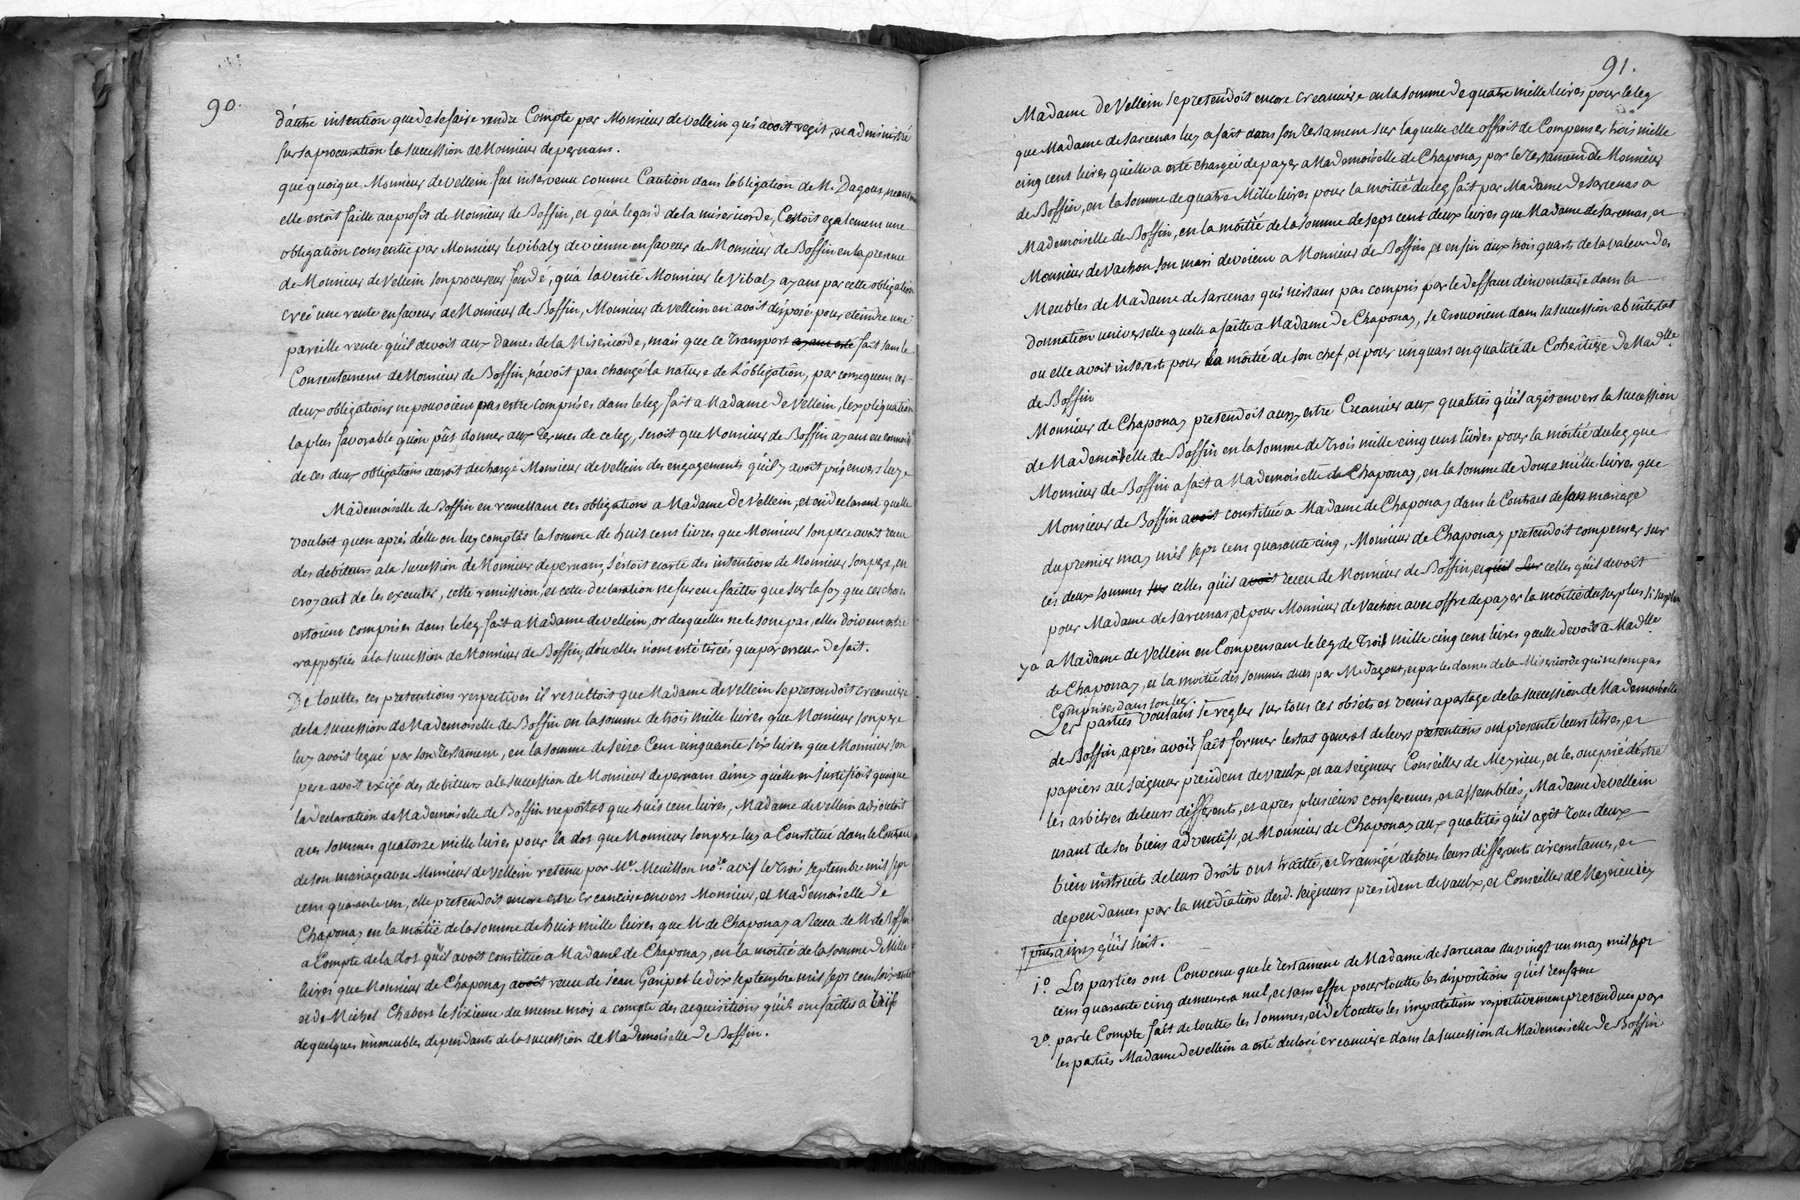 90.
d'autre intention que de se faire rendre Compte par Monsieur de vellein qui avoit regit, et administré
sur sa procuration la succession de Monsieur de pernans.
que quoique Monsieur de Vellein fut intervenu comme Caution dans l'obligation de M. Dagout, neantmoins
elle estoit faitte au profit de Monsieur de Boffin, et qu'a legard de la misericorde, C'estoit egalement une
obligation consentie par Monsieur le vibaly de vienne en faveur de Monsieur de Boffin en la presence
de Monsieur de Vellein son procureur fondé, qu'a la verité Monsieur le Vibaly ayant par cette obligation
créé une rente en faveur de Monsieur de Boffin, Monsieur de vellein en avoit disposé pour eteindre une
pareille rente qu'il devoit aux Dames de la Misericorde, mais que ce transport ayant esté fait sans le
Consentement de Monsieur de Boffin, n'avoit pas changé la nature de L'obligation, par consequent ces
deux obligations ne pouvoient pas estre comprises dans le leg fait a Madame de Vellein, l'expliquation
la plus favorable qu'on pût donner aux termes de ce leg, seroit que Monsieur de Boffin ayant eu connoiss.
de ces deux obligations auroit dechargé Monsieur de vellein des engagements qu'il y avoit pris envers luy.
Mademoiselle de Boffin en remettant ces obligation a Madame de Vellein, et en declarant quelle
vouloit qu'en aprés d'elle on luy comptât la somme de huit cent livres que Monsieur son pere avoit receu
des debiteurs a la succession de Monsieur de pernans, s'estoit ecarté des intentions de Monsieur son pere, en
croyant de les executer, cette remission, et cette declaration ne furent faittes que sur la foy que ces choses
estoient comprises dans le leg fait a Madame de vellein, or des quelles ne le sont pas, elles doivent estre
rapportées a la succession de Monsieur de Boffin, d'ou elles n'ont esté tirées que par erreur de fait.
De touttes ces pretentions respectives il resultoit que Madame de Vellein se pretendoit creanciere
de la succession de Mademoiselle de Boffin en la somme de trois mille livres que Monsieur son pere
luy avoit legué par son testament, en la somme de seize Cent cinquante six livres que Monsieur son
pere avoit exigé des debiteurs a la succession de Monsieur de pernans ainsy qu'elle en justifioit quoique
la declaration de Mademoiselle de Boffin ne portat que huit cent livres, Madame de Vellein adjoutoit
a ces sommes quatorze mille livres pour la dot que Monsieur son pere luy a Constitué dans le Contract
de son mariage avec Monsieur de Vellein retenu par Me. Meuillon nore. a vif le trois septembre mil sept
cent quarante un, elle pretendoit encore estre creanciere envers Monsieur, et Mademoiselle de
Chaponay en la moitié de la somme de huit mille livres que M. de Chaponay a receu de M. de Boffin
a Compte de la dot qu'il avoit constitué a Madame de Chaponay, en la moitié de la somme de Mille
livres que Monsieur de Chaponay avoit receu de jean Garipet le dix septembre mil sept cent
et de Michel Chabert le sixieme du meme mois a compte des acquisitions qu'ils ont faittes a
de quelques immeubles dependants de la succession de Mademoiselle de Boffin.
91.
Madame de Vellein se pretendoit encore creanciere en la somme de quatre mille livres pour le leg
que Madame de sarcenas luy a fait dans son testament sur laquelle elle offroit de Compenser trois mille
cinq cent livres quelle a esté chargée de payer a Mademoiselle de Chaponay par le testament de Monsieur
de Boffin, en la somme de quatre Mille livres pour la moitié du leg fait par Madame de sarcenas a
Mademoiselle de Boffin, en la moitié de la somme de sept cent deux livres que Madame de sarcenas, et
Monsieur de Vachon son mari devoient a Monsieur de Boffin, et enfin aux trois quarts de la valeur des
Meubles de Madame de sarcenas qui n'estant pas compris par le deffaut d'inventaire dans la
donnation universelle quelle a faitte a Madame de Chaponay, se trouvoient dans sa succession ab intestat
ou elle avoit interest pour la moitié de son chef, et pour un quart en qualité de Cohéritiere de Madlle.
de Boffin
Monsieur de Chaponay pretendoit aussy estre Creancier aux qualités qu'il agit envers la succession
de Mademoiselle de Boffin en la somme de trois mille cinq cent livres pour la moitié du leg que
Monsieur de Boffin a fait a Mademoiselle de Chaponay, en la somme de douze mille livres que
Monsieur de Boffin avoit constitué a Madame de Chaponay dans le Contract de son mariage
du premier may mil sept cent quarante cinq, Monsieur de Chaponay pretendoit compenser sur
ces deux sommes sur celles qu'il avoit receu de Monsieur de Boffin, et qu'il sur celles qu'il devoit
pour Madame de sarcenas, et pour Monsieur de Vachon avec offre de payer la moitié du surplus si surplus
y a a Madame de Vellein en Compensant le leg de trois mille cinq cent livres quelle devoit a Madlle.
de Chaponay, et la moitié des sommes dues par M. Dagout, et par les dames de la Misericorde qui ne sont pas
Comprises dans son leg.
Les parties voulant se regler sur tous ces objets et venir a partage de la succession de Mademoiselle
de Boffin, aprés avoir fait former lestat general de leurs pretentions ont presenté leurs titres, et
papiers au seigneur president de vaulx, et au seigneur Conseiller de Meyrieu, et les ont prié d'estre
les arbitres de leurs differents, et apres plusieurs conferences, et assemblées, Madame de Vellein
usant de ses biens adventifs, et Monsieur de Chaponay aux qualités qu'il agit tous deux
bien instruits de leurs droit ont traitté, et transigé de tous leurs differents circonstances, et
dependances par la mediation desd. seigneurs president de vaulx, et Conseiller de Meyrieu
ainsy qu'il suit.
1o. Les parties ont Convenu que le testament de Madame de sarcenas du vingt un may mil sept
cent quarante cinq demeurera nul, et sans effet pour touttes les dispositions qu'il renferme
2o. par le Compte fait de touttes les sommes, et de touttes les imputations respectivement pretendues par
les parties Madame de vellein a esté declaré creanciere dans la succession de Mademoiselle de Boffin